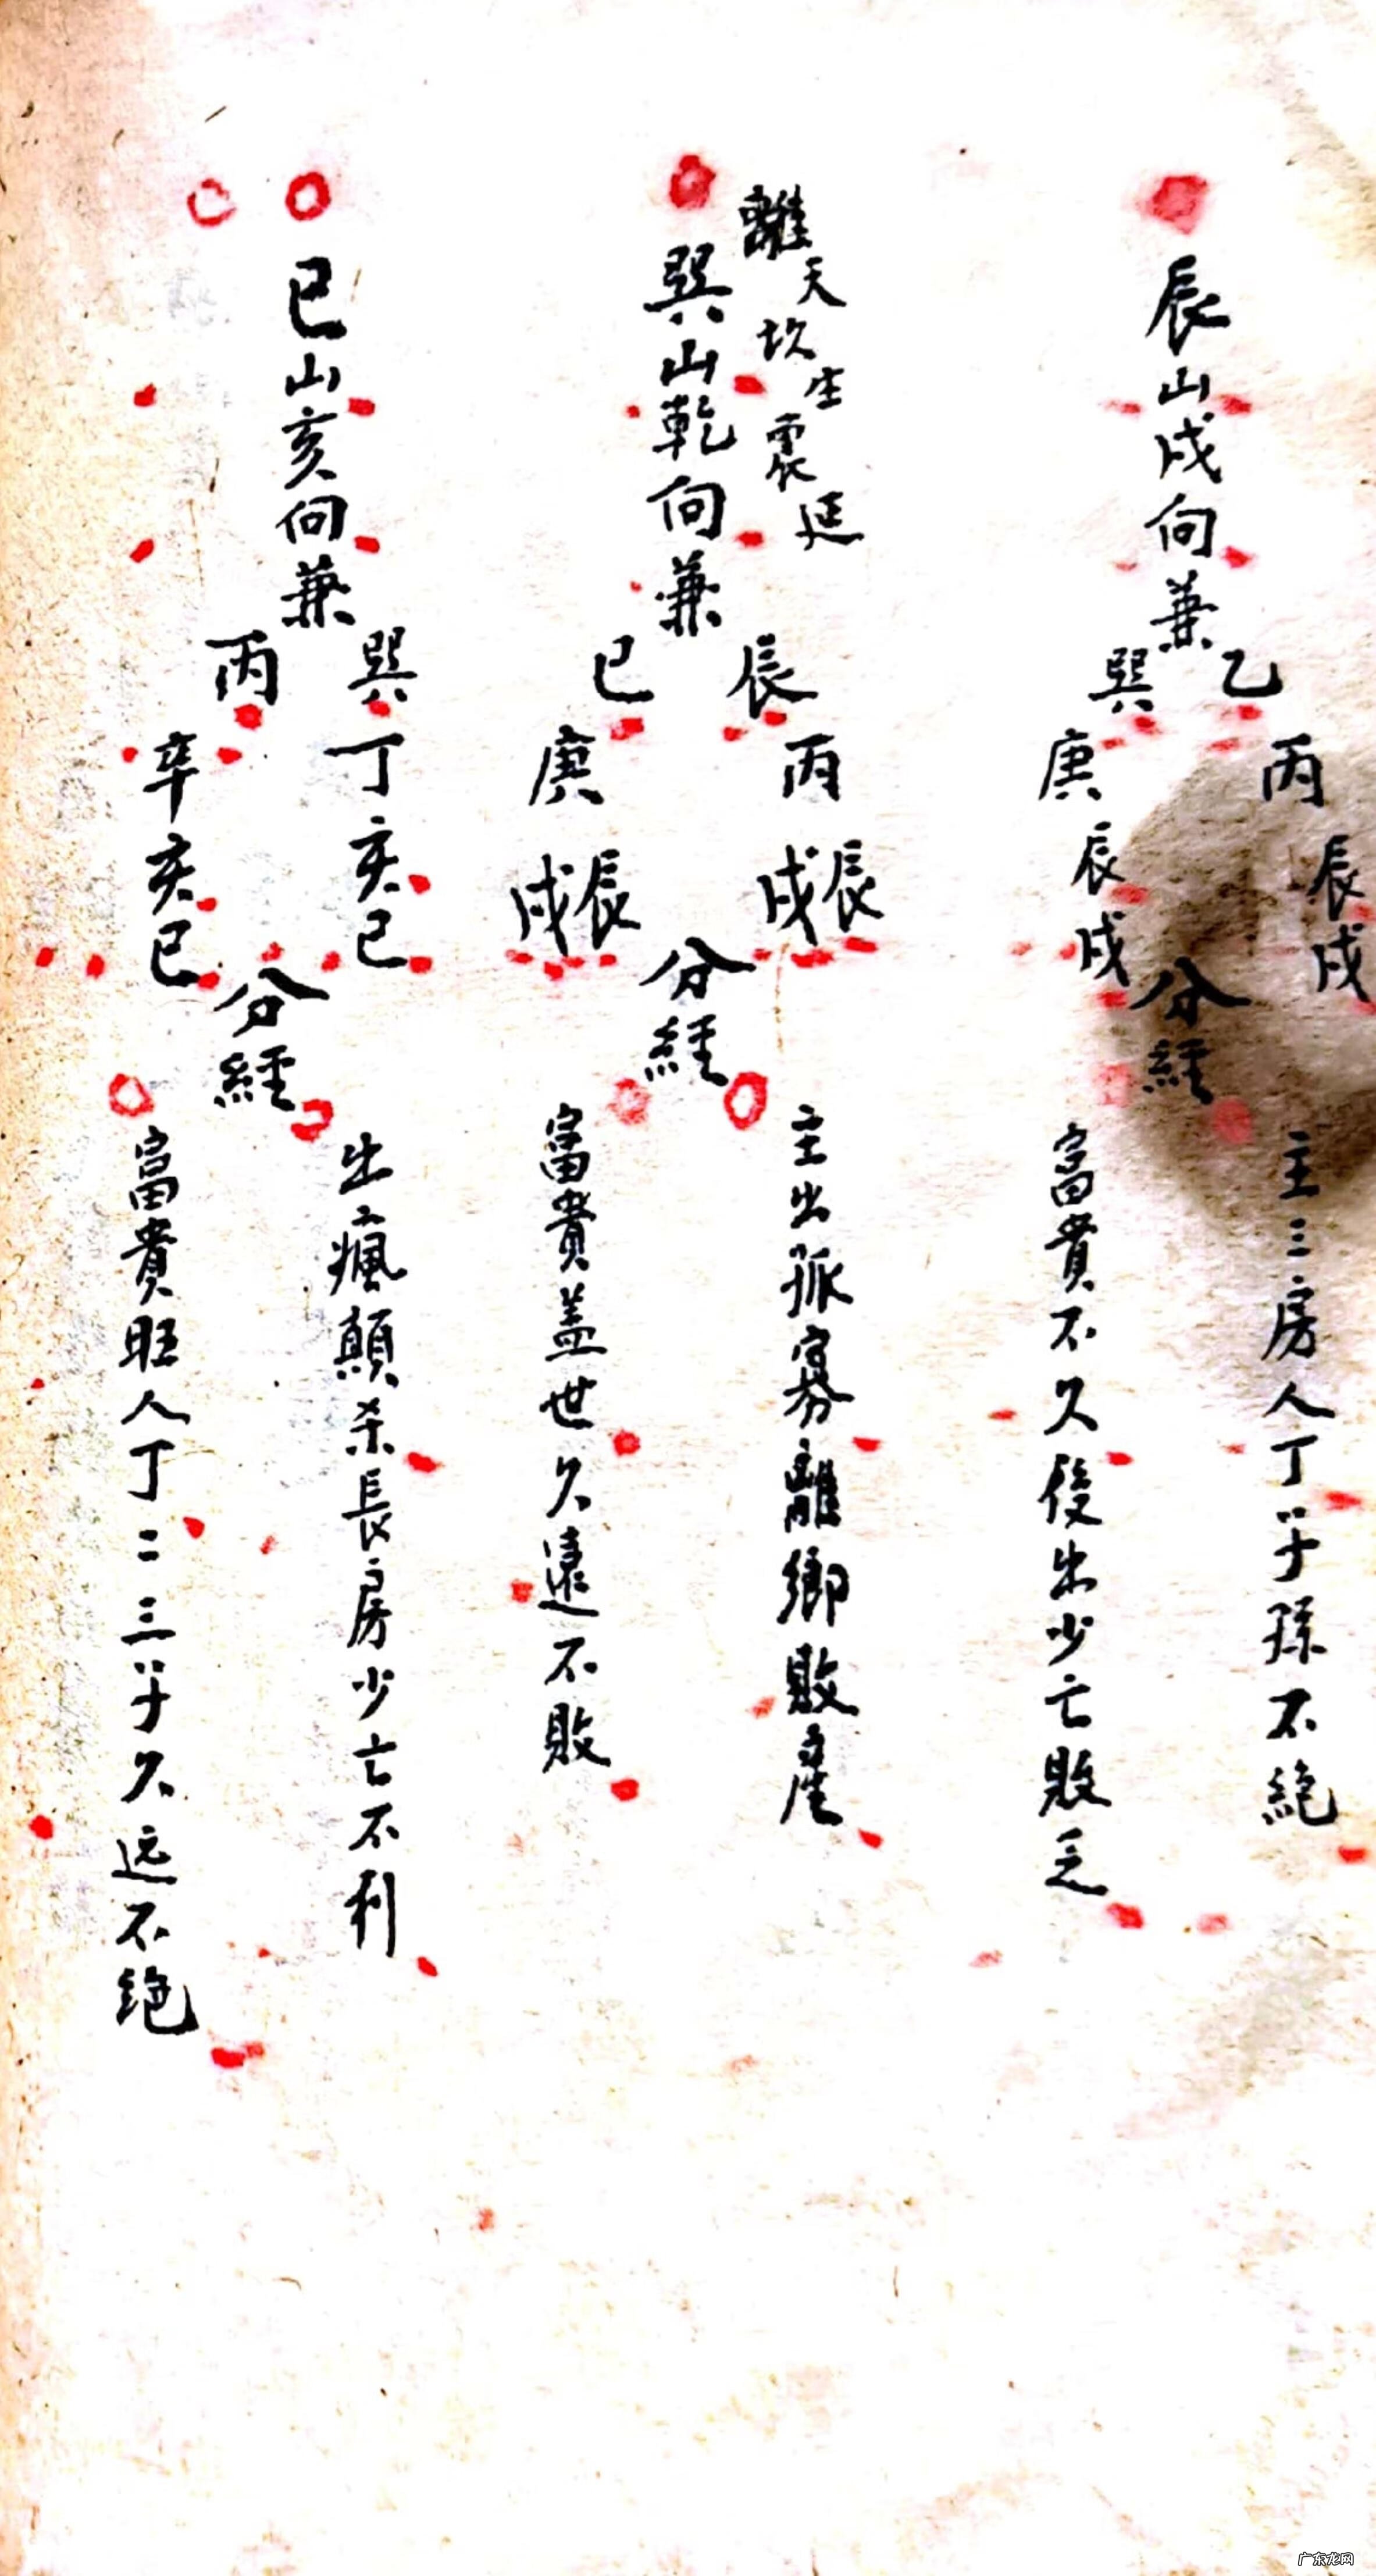 辰山戌向兼
乙丙辰戌
巽庚辰戌
分經
主三房人丁子孫不絕
富貴不久後出少亡敗乏
離天坎生震延
巽山乾向兼
辰丙辰戌
巳庚辰戌
分經
主出孤寡離鄉敗產
富貴盖世久遠不敗
巳山亥向兼
巽丁亥巳
丙辛亥巳
分經
出瘋顛杀長房少亡不利
富貴旺人丁二三子久远不绝
广东龙网